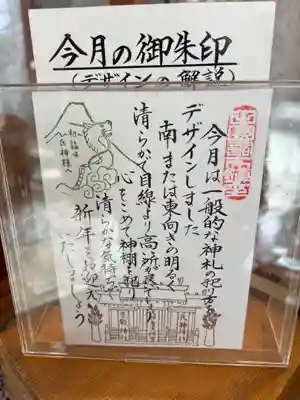 今月の御朱印
(デザインの解説)
今月は一般的な神札の祀り方を
デザインしました
南または東向きの明るく
清らかで目線より高い所が良いでしょう
心をこめて神棚を祀り
清らかな気持ちで
新年をお迎え
いたしましょう
初詣は
氏神様へ